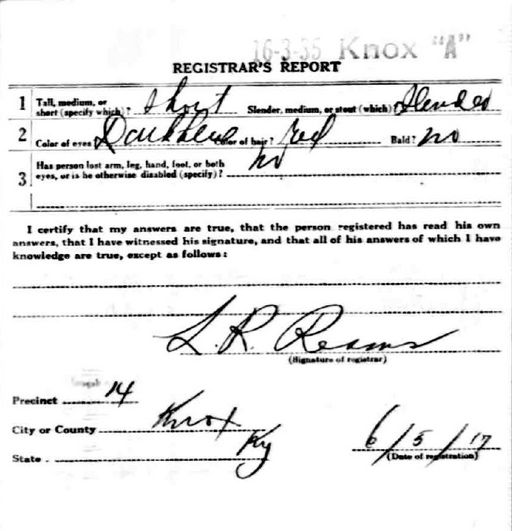 16-3-35 Knox "A"
REGISTRAR'S REPORT
1 Tall, medium, or short (specify which)? Short Slender, medium, or stout (which) Slender
2 Color of eyes Dark blue Color of hair? red Bald? no
3 Has person lost arm, leg, hand, foot, or both eyes, or is he otherwise disabled (specify)? no
I certify that my answers are true, that the person registered has read his own
answers, that I have witnessed his signature, and that all of his answers of which I have
knowledge are true, except as follows:
L. R. Reams
(Signature of registrar)
Precinct 14
City or County Knox
State Ky
6/5/17
(Date of registration)